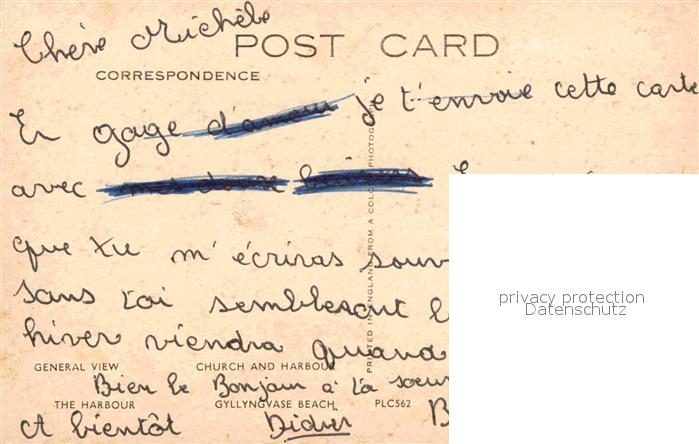 Chère Michèle
POST CARD
CORRESPONDENCE
En gage d'amour je t'envoie cette carte
avec mes doux baisers
que tu m'écriras souv
sans toi sembleront l
hiver viendra quand
PRINTED IN ENGLAND FROM A COLOUR PHOTOGRAPH
privacy protection
Datenschutz
GENERAL VIEW CHURCH AND HARBOUR
Bien le Bonjour à ta soeur
THE HARBOUR GYLLYNGVASE BEACH PLC562
A bientôt Didier B